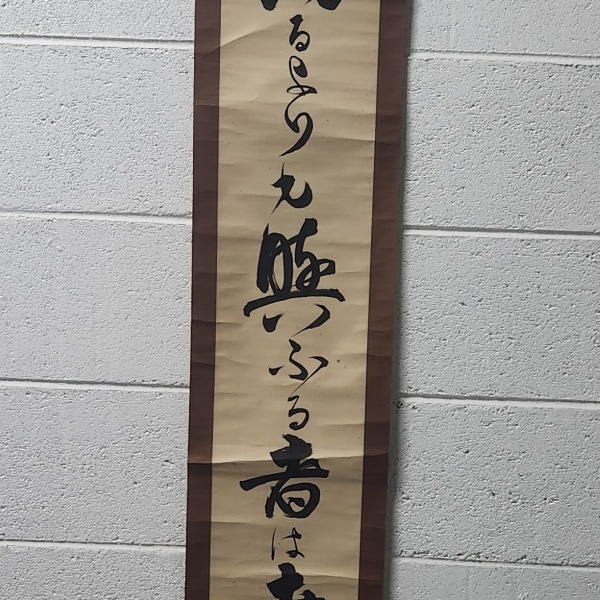 るよりも與ふる者は